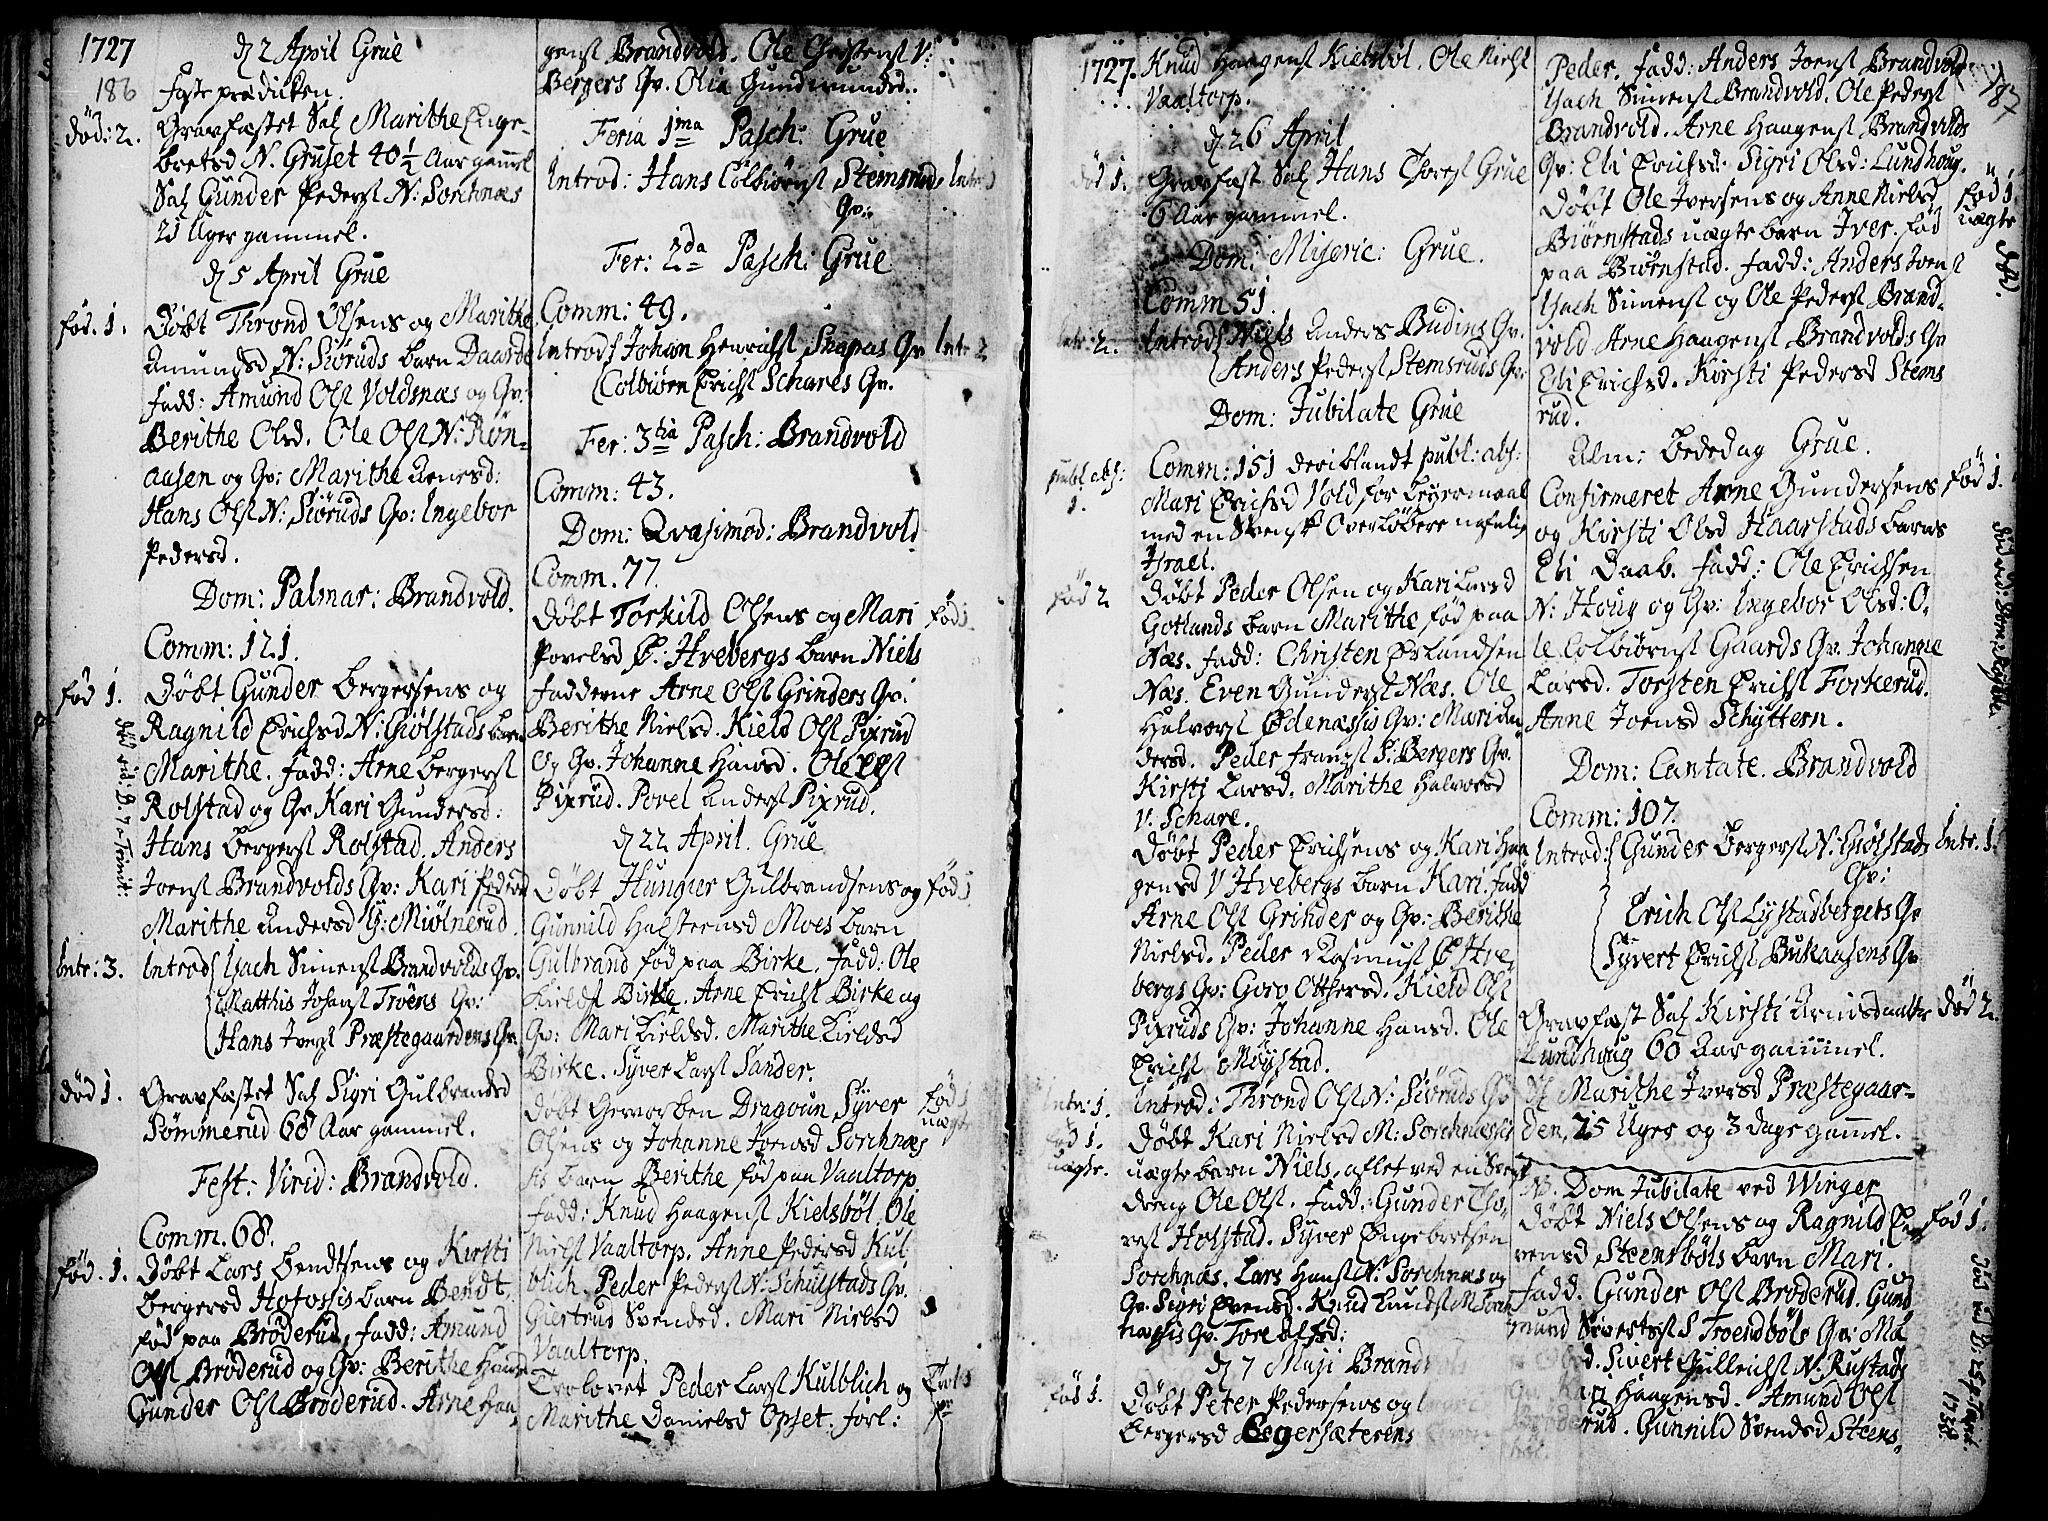 1727
186
d 2 April Grue
Faste prædicken.
død: 2.
Gravfæstet Sal Marithe Enge-
bretsd N. Gruset 40 1/2 Aar gamel
Sal Gunder Peders N: Sorchnæs
21 Uger gammel.
d 5 April Grue
fød. 1.
Døbt Thrond Olsens og Marithe
Amundsd N: Siøruds barn Daarde
fadd: Amund Ols Voldsnæs og Qv:
Berithe Olsd. Ole Ols N: Røn-
aasen og Qv: Marithe Arnesd:
Hans Ols N: Siøruds Qv: Ingebor
Pedersd.
Dom: Palmar: Brandvold.
Comm: 121.
fød 1.
Døbt Gunder Bergersens og
Ragnild Erichsd N: Giølstads barn
Marithe. fadd: Arne Bergers
Rolstad og Qv Kari Gundersd:
Hans Bergers Rolstad. Anders
Joens Brandvolds Qv: Kari Pedersd
Marithe Andersd G: Miølnerud.
Intr: 3.
Introd Isach Simens Brandvolds Qv.
Matthis Johans Troens Qv:
Hans Ivers Præstegaardens Qv.
død 1.
Gravfæstet Sal Sigri Gulbrandsd
Sømmerud 68 Aar gammel.
Fest: Virid: Brandvold.
Comm. 68.
fød. 1.
Døbt Lars Bendtsens og Kirsti
Bergersd Hofossis barn Bendt.
fød paa Brøderud, fadd: Amund
Ols Brøderud og Qv: Berithe Hansd
Gunder Ols Brøderud. Arne Haa-
gens Brandvold. Ole Christens V:
Bergers Qv. Olia Gundmundsd.
Feria 1ma Pasch: Grue
Introd: Hans Colbiørns Stemsruds
Qv:
Intr: 1
Fer: 2da Pasch: Grue
Comm: 49.
Introd Johan Henrichs Skapas Qv
Intr: 2
Colbiørn Erichs Schares Qv.
Fer: 3tia Pasch: Brandvold
Comm: 43.
Dom: Qvasimod: Brandvold
Comm. 77.
Døbt Torkild Olsens og Mari
fød 1
Povelsd Ø: Hvebergs barn Niels
fadderne Arne Ols Grinders Qv:
Berithe Nielsd. Kield Ols Pixrud
og Qv. Johanne Hansd. Ole Ols
Pixrud. Povel Anders Pixrud.
d 22 April. Grue
Døbt Hungier Gulbrandsens og
fød 1
Gunnild Halsteensd Moes barn
Gulbrand fød paa Birke. fadd: Ole
Kields Birke. Arne Erichs Birke og
Qv: Mari Kieldsd. Marithe Kieldsd
Birke. Syver Lars Sander.
Døbt hververben Dragoun Syver
fød 1
uægte
Olsens og Johanne Joensd Sorchnæs
sis barn Berithe fød paa Vaaltorp
fadd: Knud Haagens Kielsbøl. Ole
Niels Vaaltorp. Anne Pedersd Kul
blich. Peder Peders N: Schulstads Qv.
Giertrud Svendsd. Mari Nielsd
Vaaltorp.
Trolovet Peder Lars Kulblich og
Marithe Danielsd Opset. forl:
1727.
Knud Haagens Kielsbøl. Ole Niels
Vaaltorp.
d 26 April
død 1.
Gravfæst Sal Hans Thores Grue
6 Aar gammel.
Dom: Miseric: Grue.
Comm 51.
Intr: 2.
Introd Niels Anders Budins Qv.
Anders Peders Stemsruds Qv:
Dom: Jubilate Grue
publ. abs:
1.
Comm: 151 deriblandt publ: abs:
Mari Erichsd Vold for leyermaal
med en Svensk Overløbere nafnlig
Israel.
fød 2
Døbt Peder Olsen og Kari Larsd
Gotlands barn Marithe fød paa
Næs. fadd: Christen Erlandsen
Næs. Even Gunders Næs. Ole
Halvors Ødenæssis Qv: Mari An
dersd. Peder Frans S: Bergers Qv.
Kirsti Larsd. Marithe Halvorsd
V. Schare.
Døbt Peder Erichsens og Kari Haa
gensd V Hvebergs barn Kari. fadd
Arne Ols Grinder og Qv: Berithe
Nielsd. Peder Rasmus Ø Hve
bergs Qv: Goro Ottersd. Kield Ols
Pixruds Qv: Johanne Hansd. Ole
Erichs Møystad.
Intr: 1.
Introd: Thrond Ols N: Siøruds Qv
fød 1.
uægte.
Døbt Kari Nielsd M: Sorchnæssis
uægte barn Niels, aflet ved en Svensk
dreng Ole Ols. fadd: Gunder Tho-
res Holstad. Syver Engebretsen
Sorchnæs. Lars Hans N: Sorchnæs og
Qv. Sigri Evensd. Knud Lunds M Sorch
næssis Qv. Tore Olsd:
d 7 Maji Brand
fød 1.
Døbt Peter Pedersens og
Bergersd Eegersæterens
187
Peder. fadd: Anders Joens Brandvold
Isach Simens Brandvold. Ole Peders
Brandvold. Arne Haagens Brandvolds
Qv: Eli Erichsd. Sigri Olsd: Lundhoug.
fød 1.
uægte
Døbt Ole Iversens og Anne Nielsd
Biørnstads uægte barn Iver. fød
paa Biørnstad. fadd: Anders Joens
Isach Simens og Ole Peders Brand-
vold Arne Haagens Brandvolds Qv
Eli Erichsd. Kirsti Pedersd Stems
rud.
Alm: Bededag Grue.
fød 1.
Confirmeret Arne Gundersens
og Kirsti Olsd Haarstads barns
Eli Daab. fadd: Ole Erichsen
N: Houg og Qv: Ingebor Olsd: O-
le Colbiørns Gaards Qv. Johanne
Larsd. Torsten Erichs Forkerud.
Anne Joensd Schyttern.
Dom: Cantate. Brandvold
Comm: 107.
Introd: Gunder Bergers N: Giølstads
Qv:
Intr. 1.
Erich Ols Lystadbergets Qv
Syvert Erichs Bukaasens Qv
Gravfæst Sal Kirsti Arnisdaatter
død 2.
Lundhoug 60 Aar gammel.
Marithe Iversd Præstegaar-
den, 25 Uger og 3 dage gamel.
NB. Dom Jubilate ved Winger
Døbt Niels Olsens og Ragnild E
fød 1.
vensd Steensbøls barn Mari.
fadd. Gunder Ols Brøderud. Gund
mund Siverts S Troensbøls Qv: Ma
d. Sivert Gulleichs N. Rustads
Kari Haagensd. Amund Ols
rud. Gunnild Svendsd Steens-